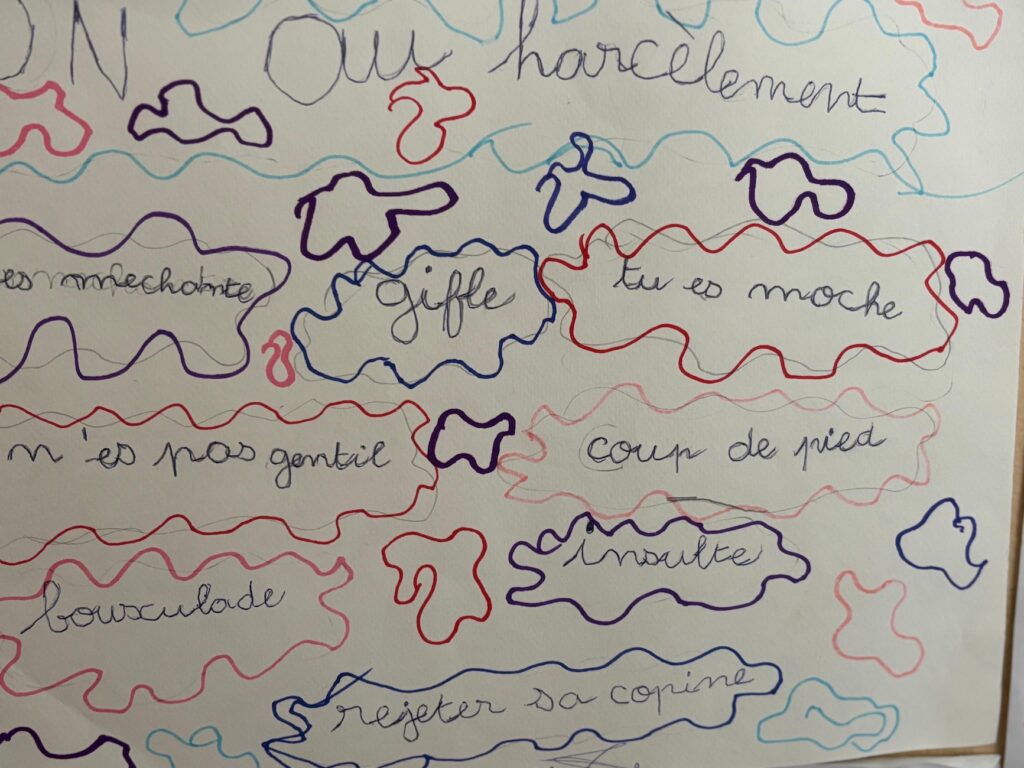 ON au harcèlement
es méchante
giffle
tu es moche
n'es pas gentil
coup de pied
insulte
bousculade
rejeter sa copine